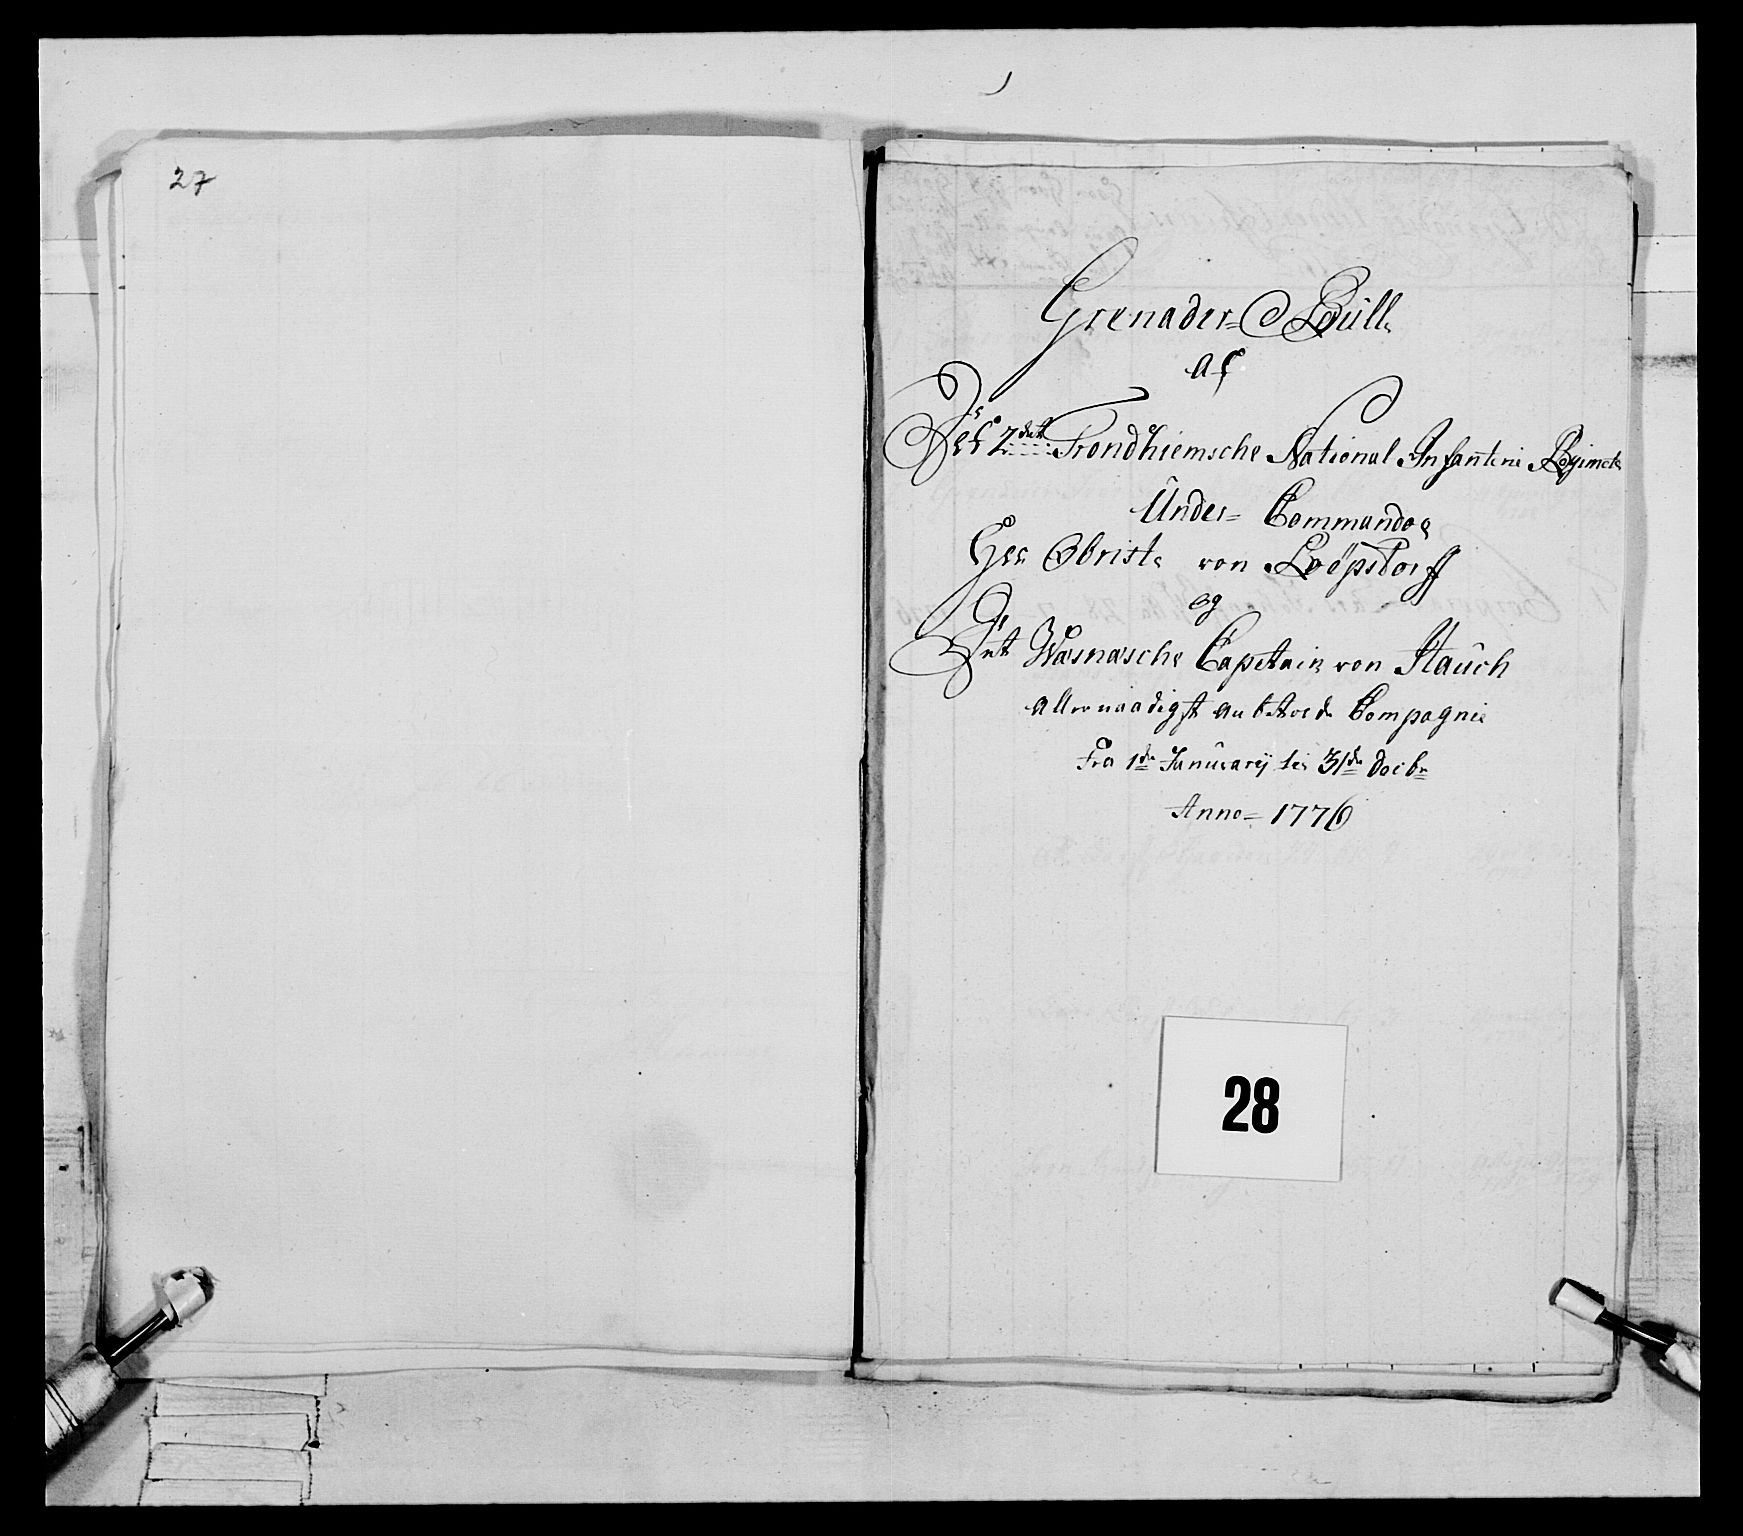 27
Grenader= Rulle
af
Det 2det Trondhiemsche National Infanterie Regimet
Under= Commando
Her Obriste von
og
Det Wæsnæsche Capitain von Stauch
allernaadigst anbetroede Compagnie
Fra 1de Januarij til 31de Decbr
Anno= 1776
28